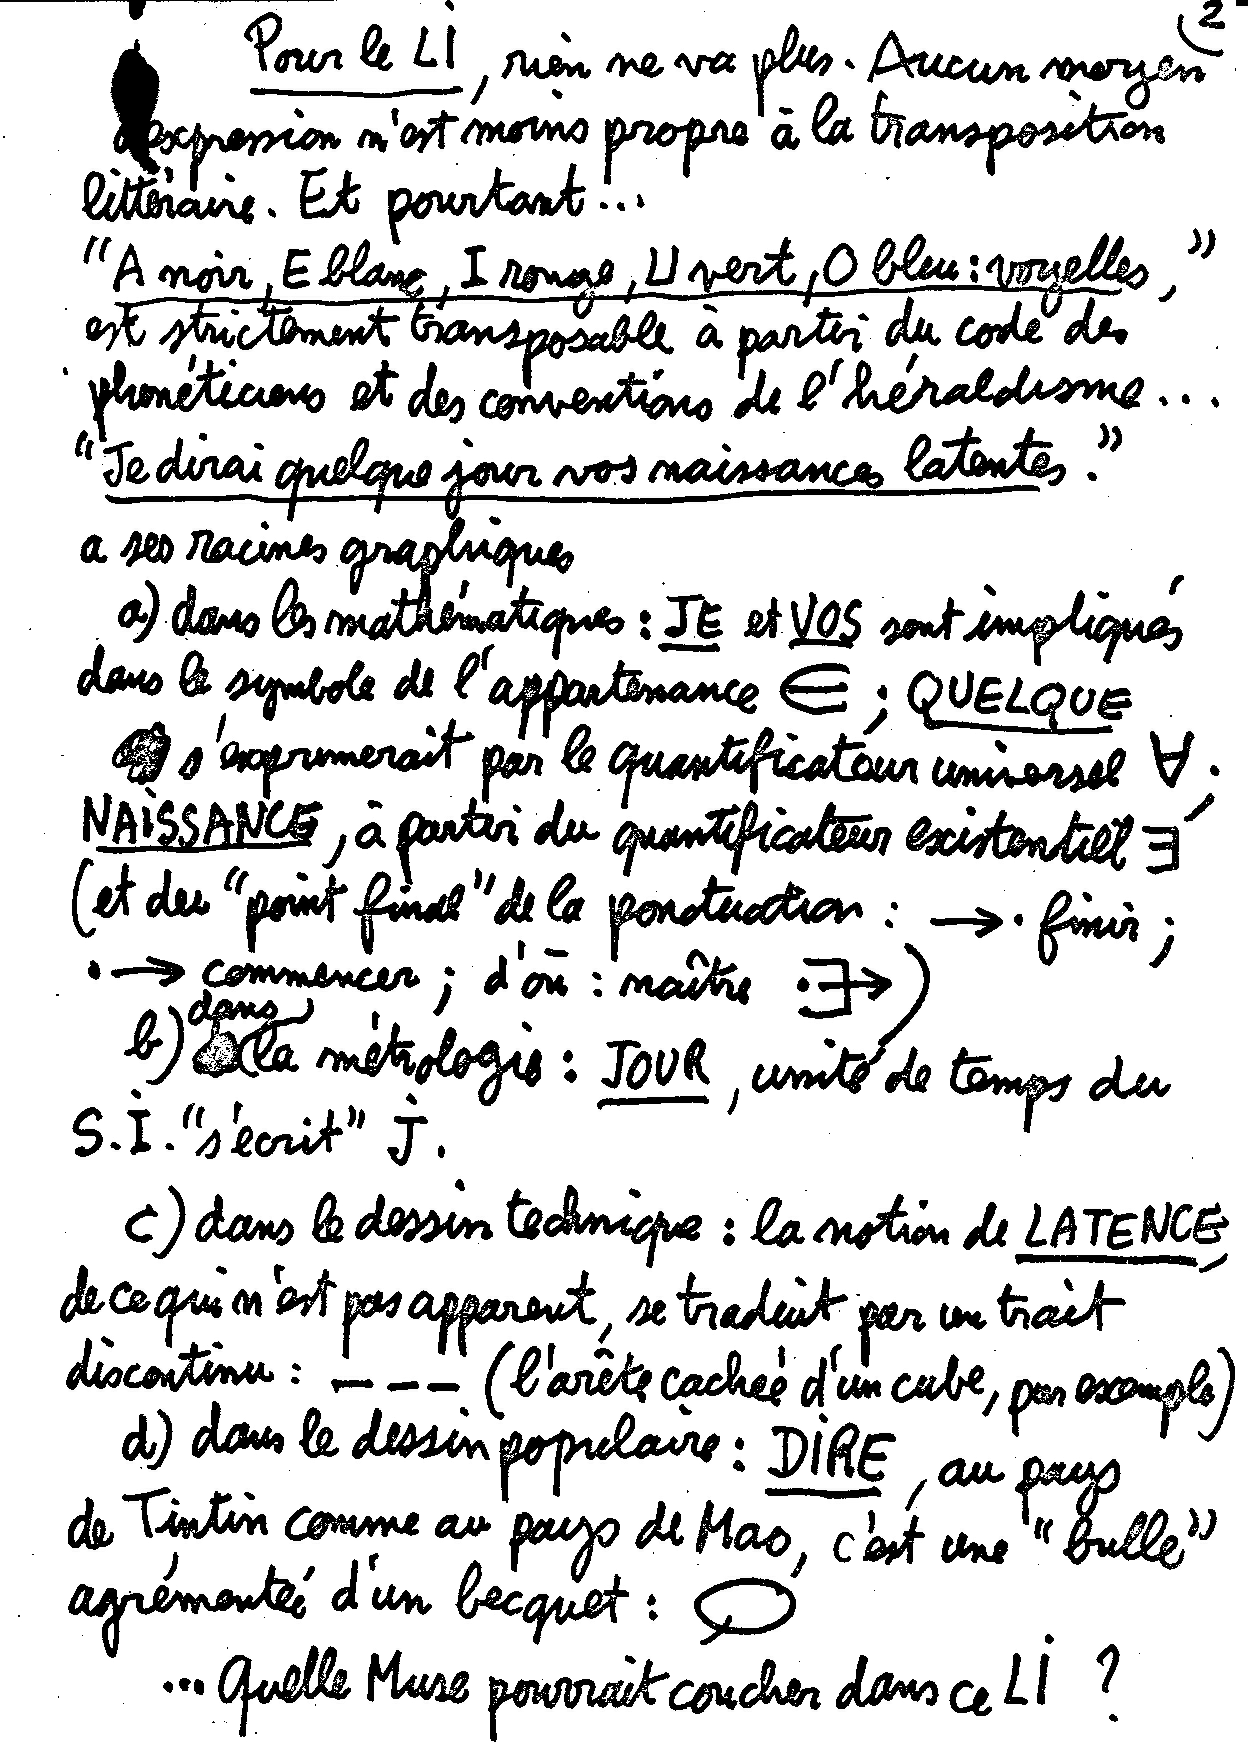 2
Pour le Li, rien ne va plus. Aucun moyen
d'expression n'est moins propre à la transposition
littéraire. Et pourtant...
"A noir, E blanc, I rouge, U vert, O bleu : voyelles,"
est strictement transposable à partir du code des
phonéticiens et des conventions de l'héraldisme...
"Je dirai quelque jour vos naissances latentes."
a ses racines graphiques
a) dans les mathématiques : JE et VOS sont impliqués
dans le symbole de l'appartenance ∈ ; QUELQUE
s'exprimerait par le quantificateur universel ∀ ;
NAISSANCE, à partir du quantificateur existentiel ∃
(et du "point final" de la ponctuation : → . finir ;
. → commencer ; d'où : naître .∃→)
b) dans la métrologie : JOUR, unité de temps du
S.I. "s'écrit" j.
c) dans le dessin technique : la notion de LATENCE,
de ce qui n'est pas apparent, se traduit par un trait
discontinu : – – – (l'arête cachée d'un cube, par exemple)
d) dans le dessin populaire : DIRE, au pays
de Tintin comme au pays de Mao, c'est une "bulle"
agrémentée d'un becquet :
... Quelle Muse pourrait coucher dans ce Li ?